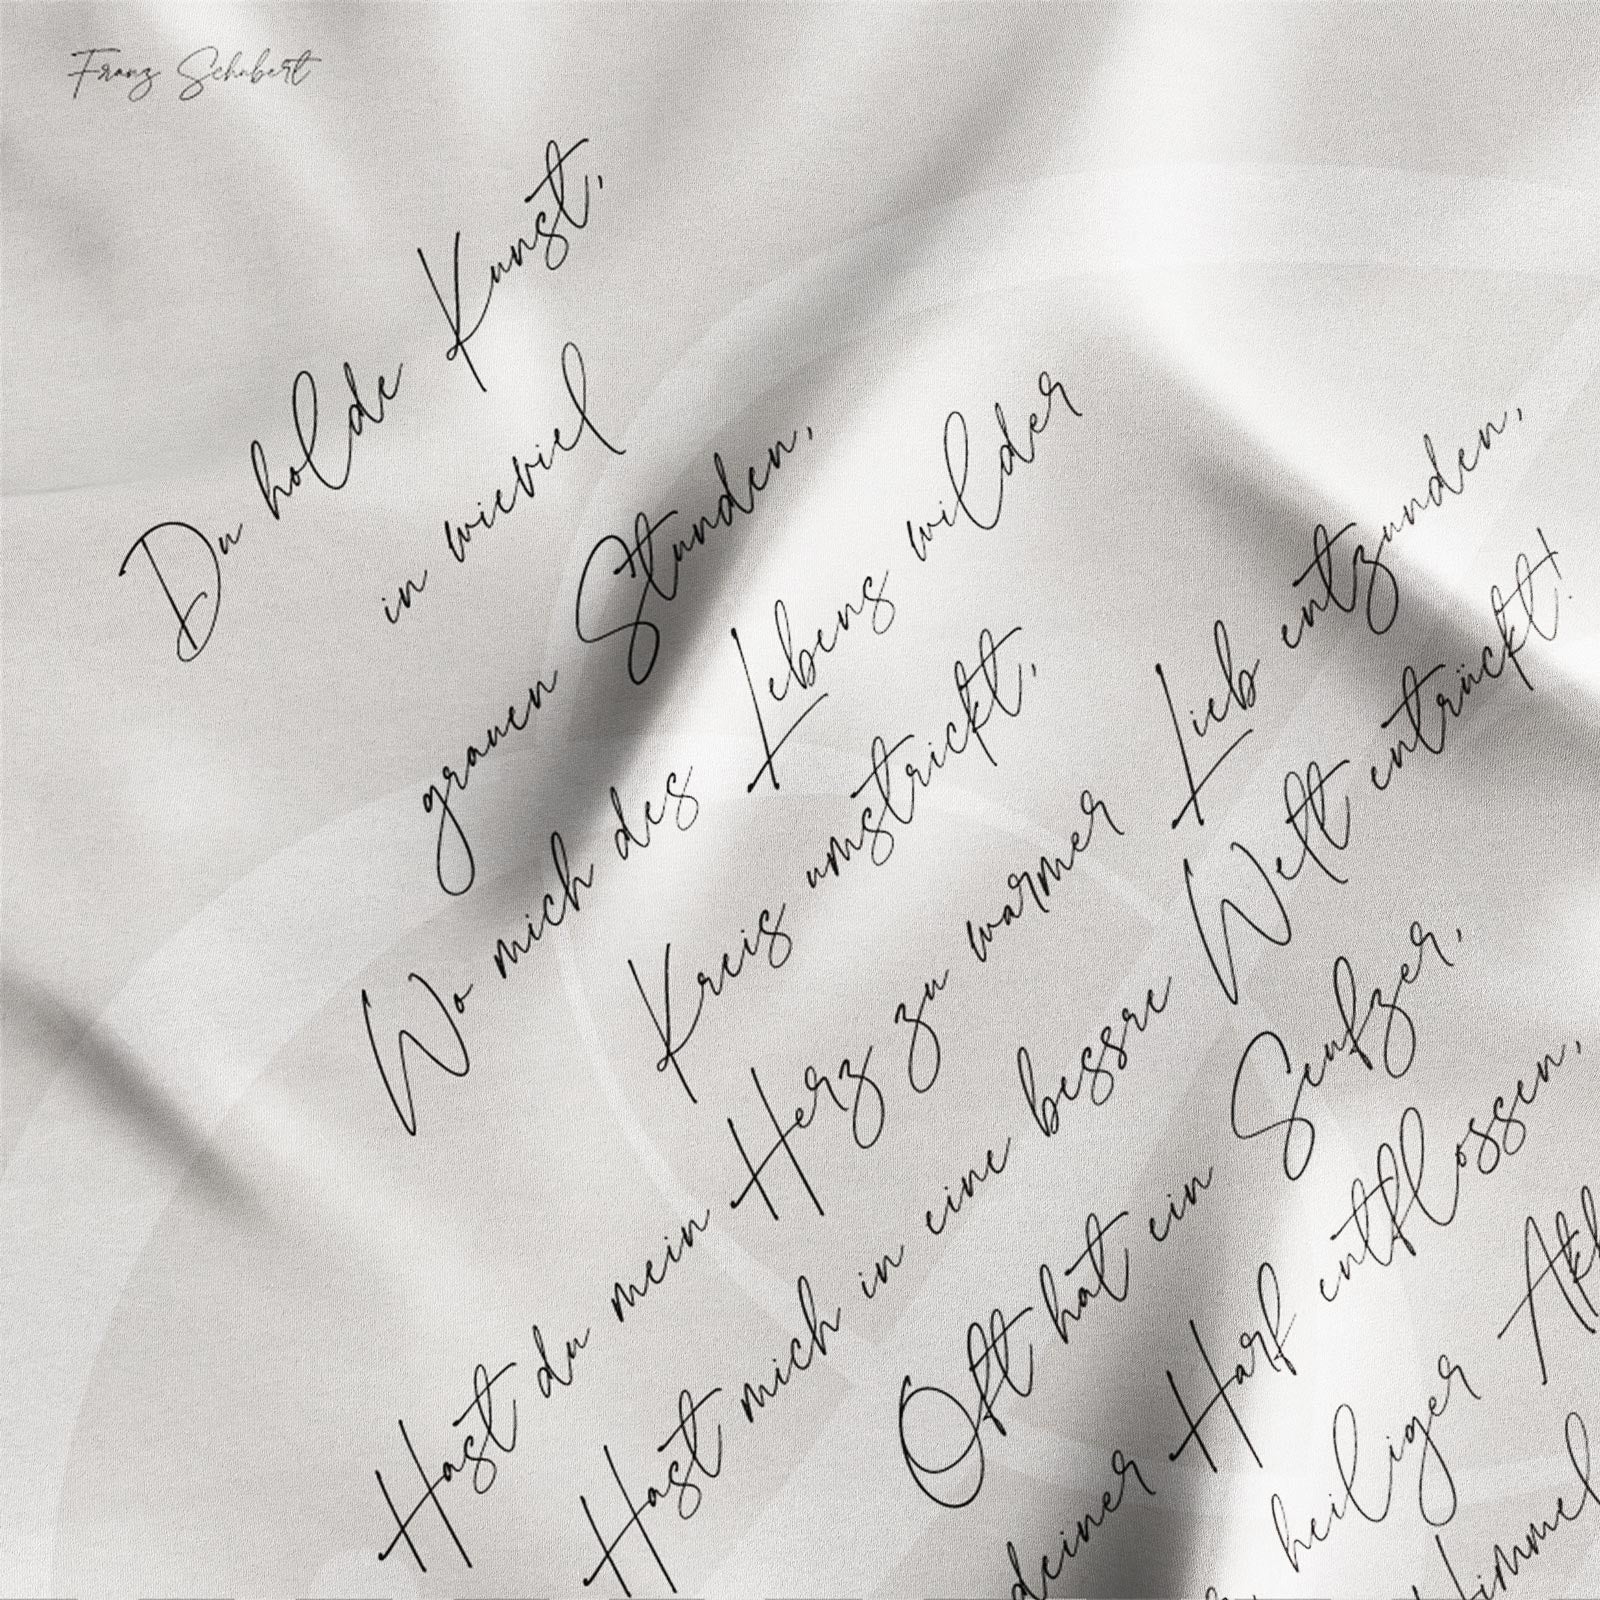 Franz Schubert
Du holde Kunst,
in wieviel
grauen Stunden,
Wo mich des Lebens wilder
Kreis umstrickt,
Hast du mein Herz zu warmer Lieb entzunden,
Hast mich in eine bessre Welt entrückt!
Oft hat ein Seufzer,
deiner Harf entflossen,
heiliger